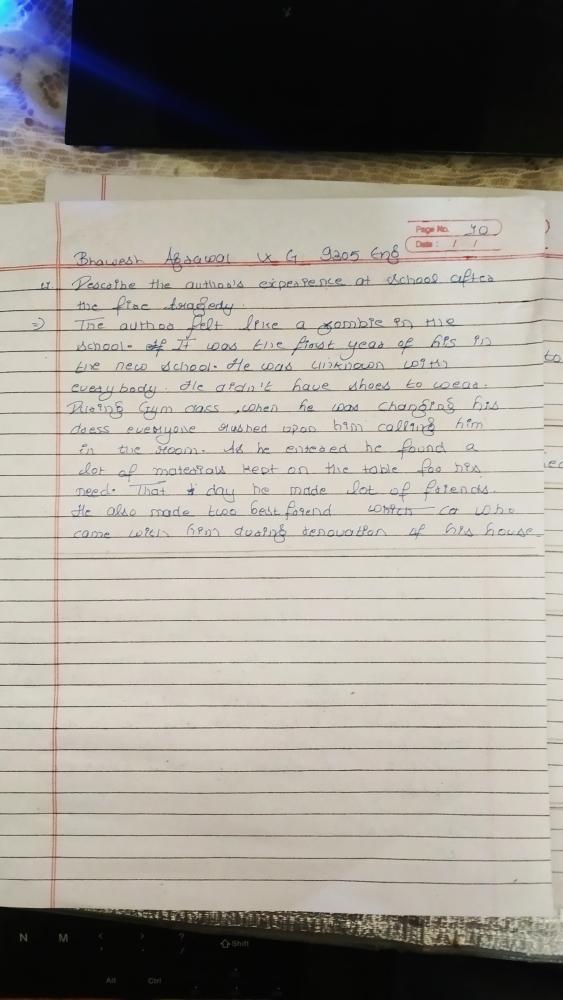 Page No. 40
Date: / /
Bhawesh Agrawal IX G 9205 Eng
Describe the author's experience at school after
the fire tragedy.
=> The author felt like a zombie in the
school. It was the first year of his in
the new school. He was unknown with
everybody. He didn't have shoes to wear.
During Gym class, when he was changing his
dress everyone rushed upon him calling him
in the room. As he entered he found a
lot of materials kept on the table for his
need. That day he made lot of friends.
He also made two best forend which who
came with him during renovation of his house.
to
N M < > ? Shift
Alt Ctrl